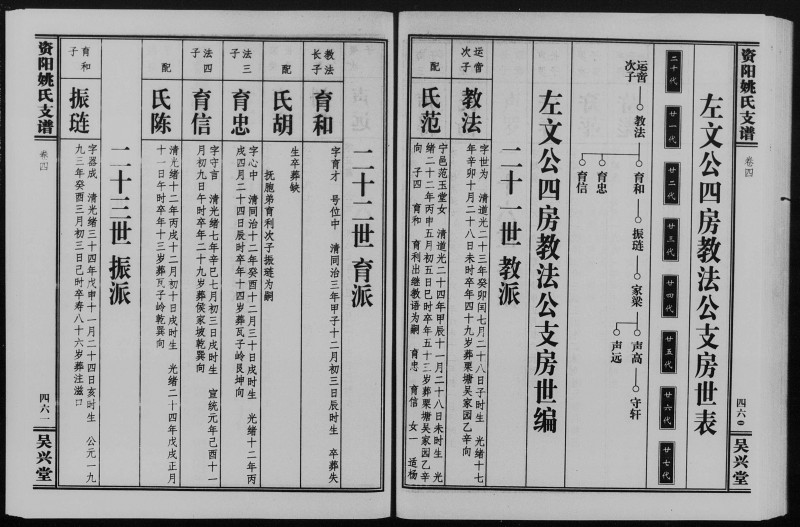 资阳姚氏支谱
卷四
四六〇
吴兴堂
左文公四房教法公支房世表
二十代
廿一代
廿二代
廿三代
廿四代
廿五代
廿六代
廿七代
运营次子
教法
育和
振琏
家梁
声高
守轩
声远
育忠
育信
左文公四房教法公支房世编
二十一世教派
运营次子
教法
字世为 清道光二十三年癸卯闰七月二十八日子时生 光绪十七
年辛卯十月二十八日未时卒年四十九岁葬栗塘吴家园乙辛向
配
氏范
宁邑范玉堂女 清道光二十四年甲辰十一月二十八日未时生 光
绪二十二年丙申五月初五日巳时卒年五十三岁葬栗塘吴家园乙辛
向 子四 育和 育利出继教语为嗣 育忠 育信 女一 适杨
二十二世育派
教法长子
育和
字育才 号位中 清同治三年甲子十二月初三日辰时生 卒葬失
配
氏胡
生卒葬缺
抚胞弟育利次子振琏为嗣
法三子
育忠
字心中 清同治十二年癸酉十二月三十日戌时生 光绪十二年丙
戌四月二十四日辰时卒年十四岁葬瓦子岭艮坤向
法四子
育信
字守言 清光绪七年辛巳七月初三日戌时生 宣统元年己酉十一
月初九日午时卒年二十九岁葬侯家坡乾巽向
配
氏陈
清光绪十二年丙戌十二月初十日戌时生 光绪二十四年戊戌正月
十一日午时卒年十三岁葬瓦子岭乾巽向
二十三世振派
育和子
振琏
字器成 清光绪三十四年戊申十一月二十四日亥时生 公元一九
九三年癸酉三月初三日己时卒寿八十六岁葬注滋口
资阳姚氏支谱
卷四
四六一
吴兴堂